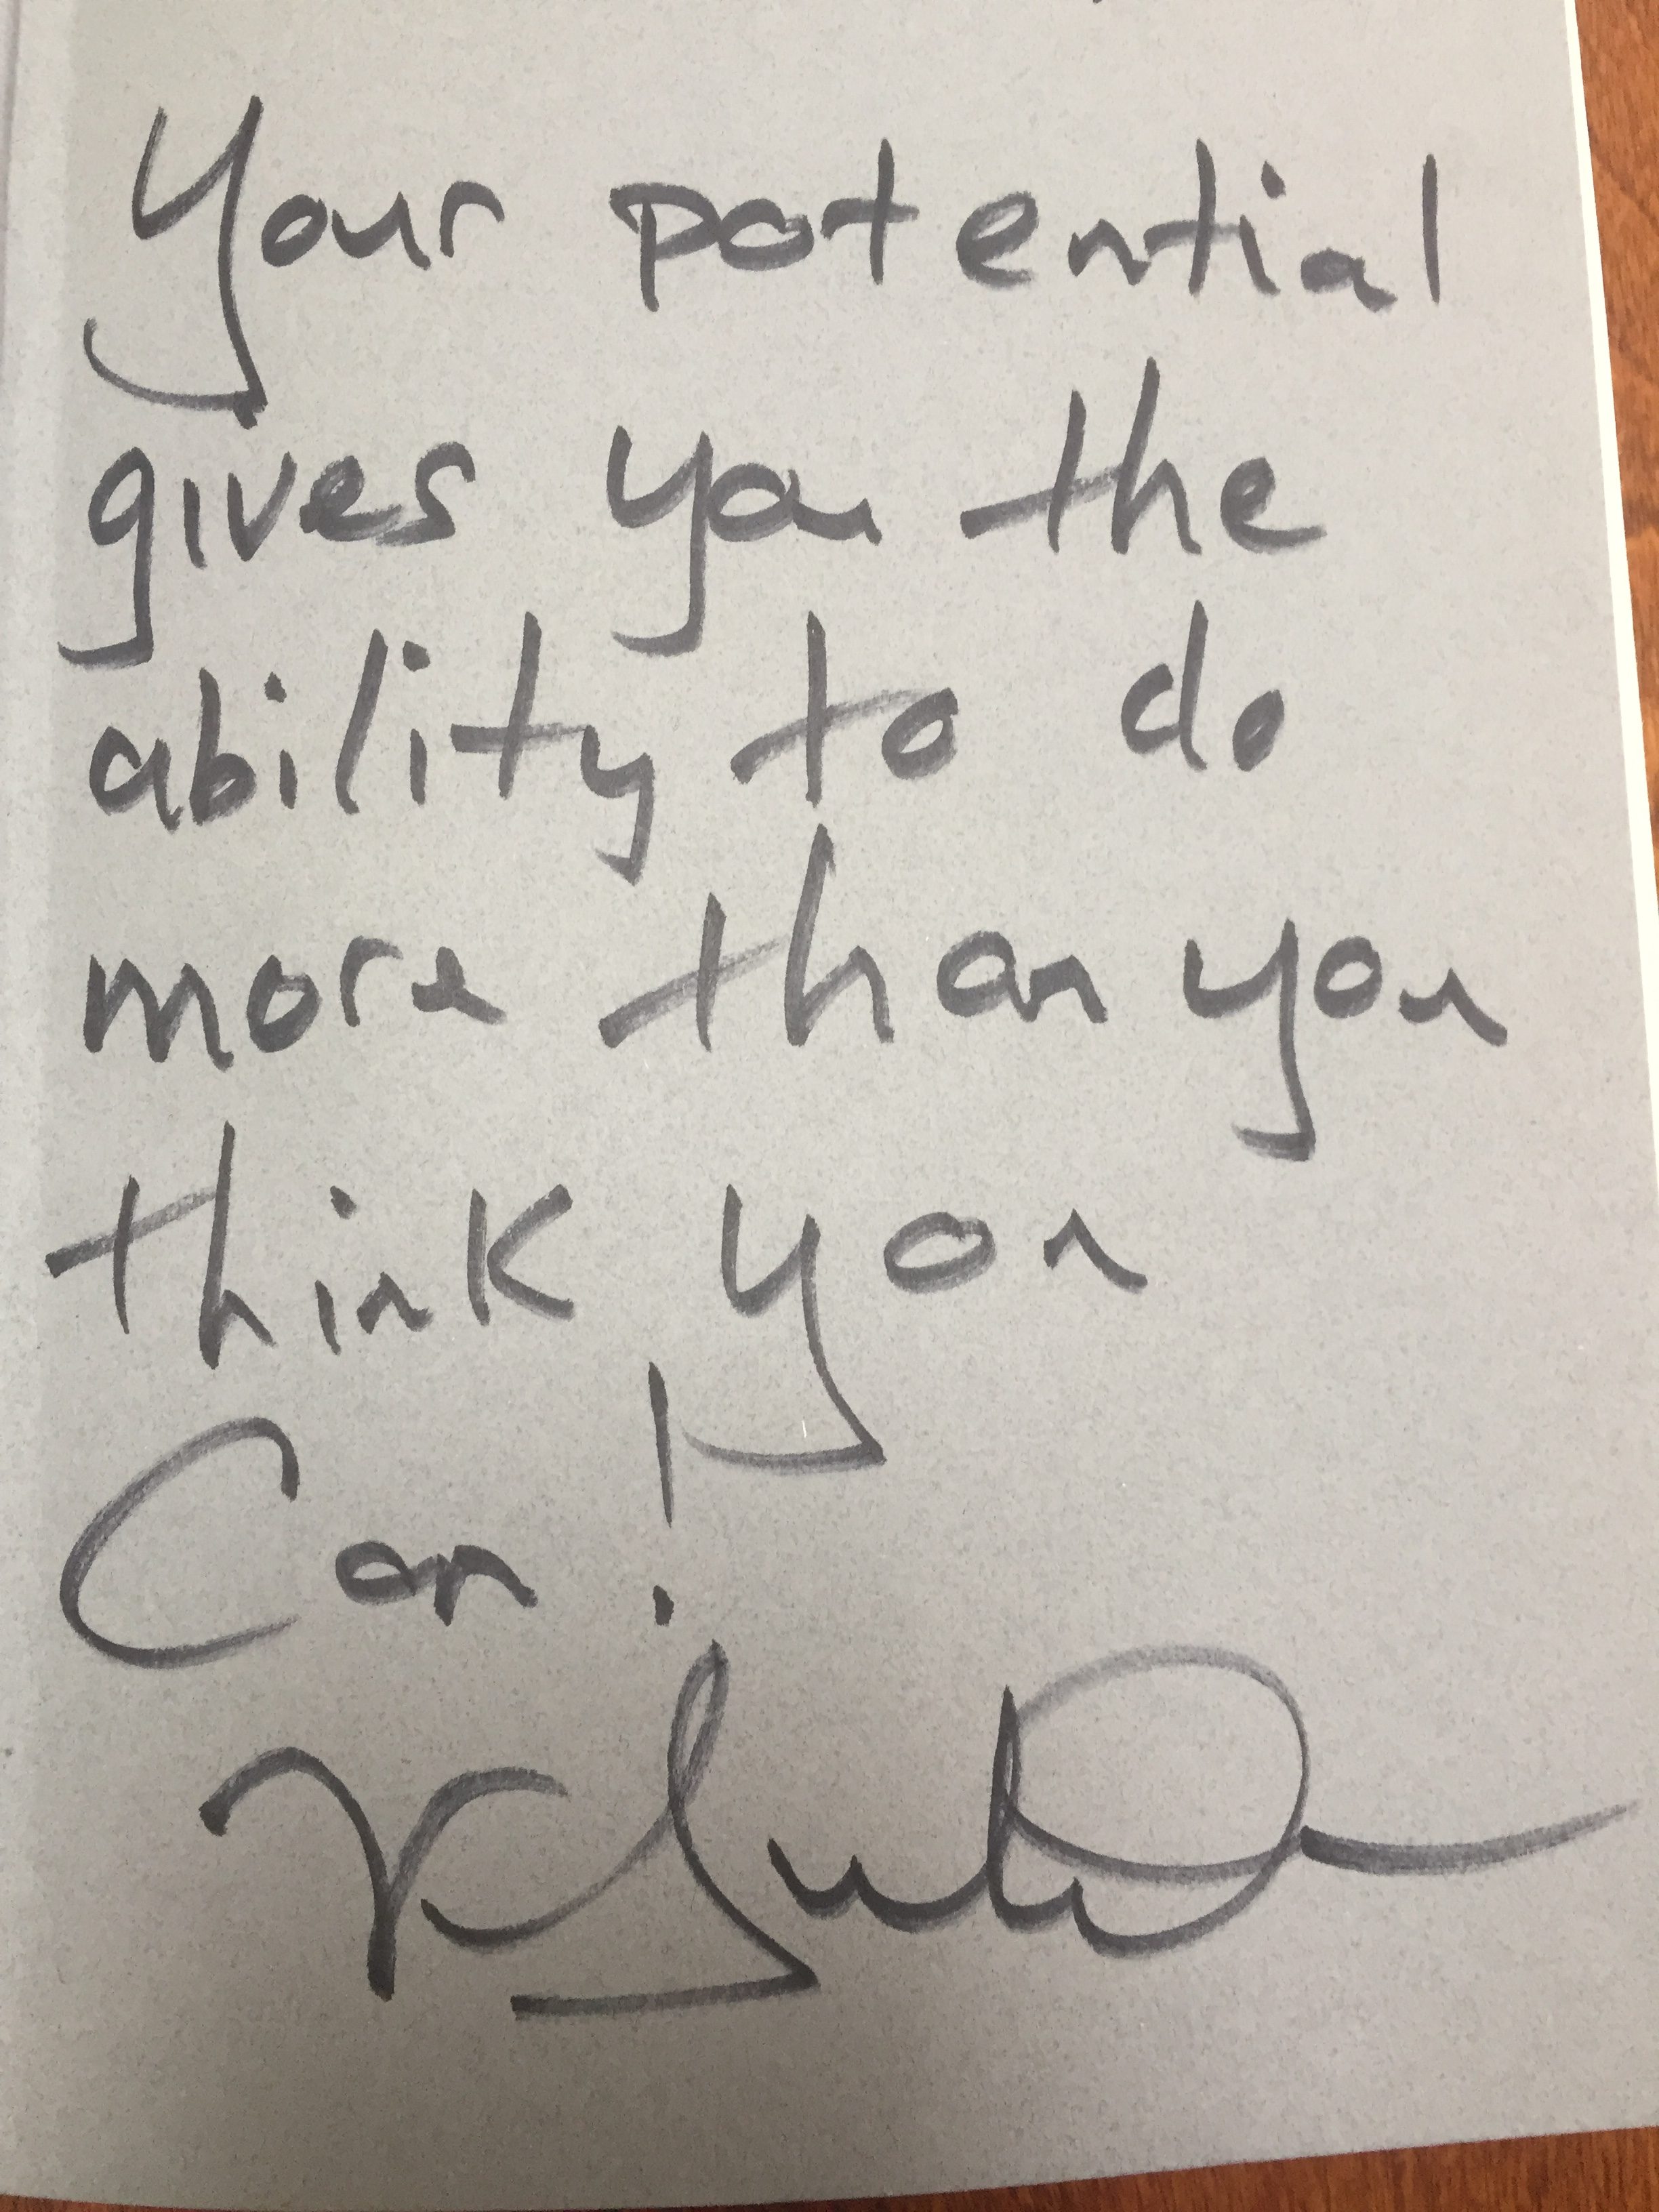 Your potential
gives you the
ability to do
more than you
think you
Can!